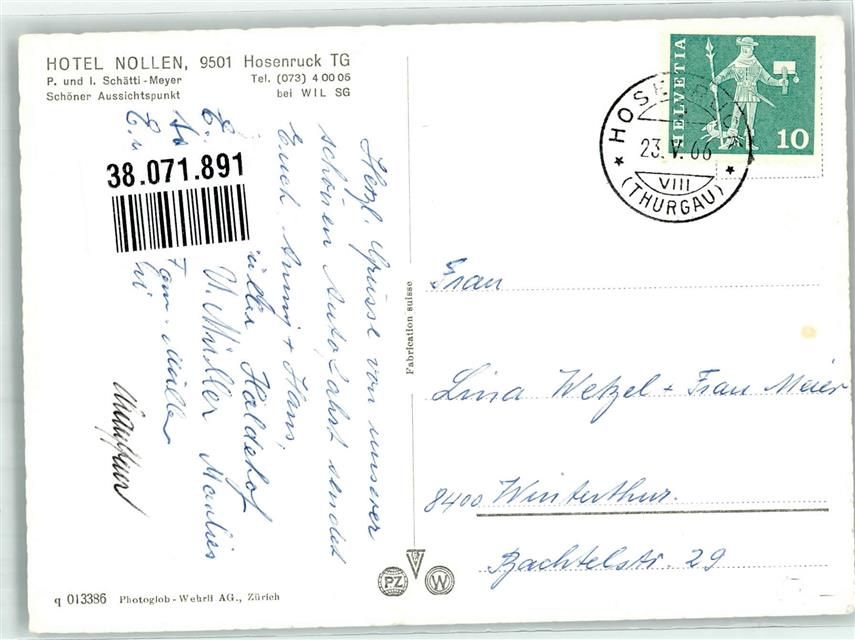 HOTEL NOLLEN, 9501 Hosenruck TG
P. und I. Schätti-Meyer Tel. (073) 4 00 06
Schöner Aussichtspunkt bei WIL SG
38.071.891
Herzl. Grüsse von unserer
schönen Autofahrt sendet
Euch Anny + Hans,
Haldehof
U. Müller Marlies
Fam. Müller
HELVETIA
10
HOSENRUCK
23.V.66
VIII
(THURGAU)
Fabrication suisse
Frau
Lina Wetzel + Frau Meier
8400 Winterthur.
Bachtelstr. 29
PZ
W
q 013386 Photoglob-Wehrli AG., Zürich